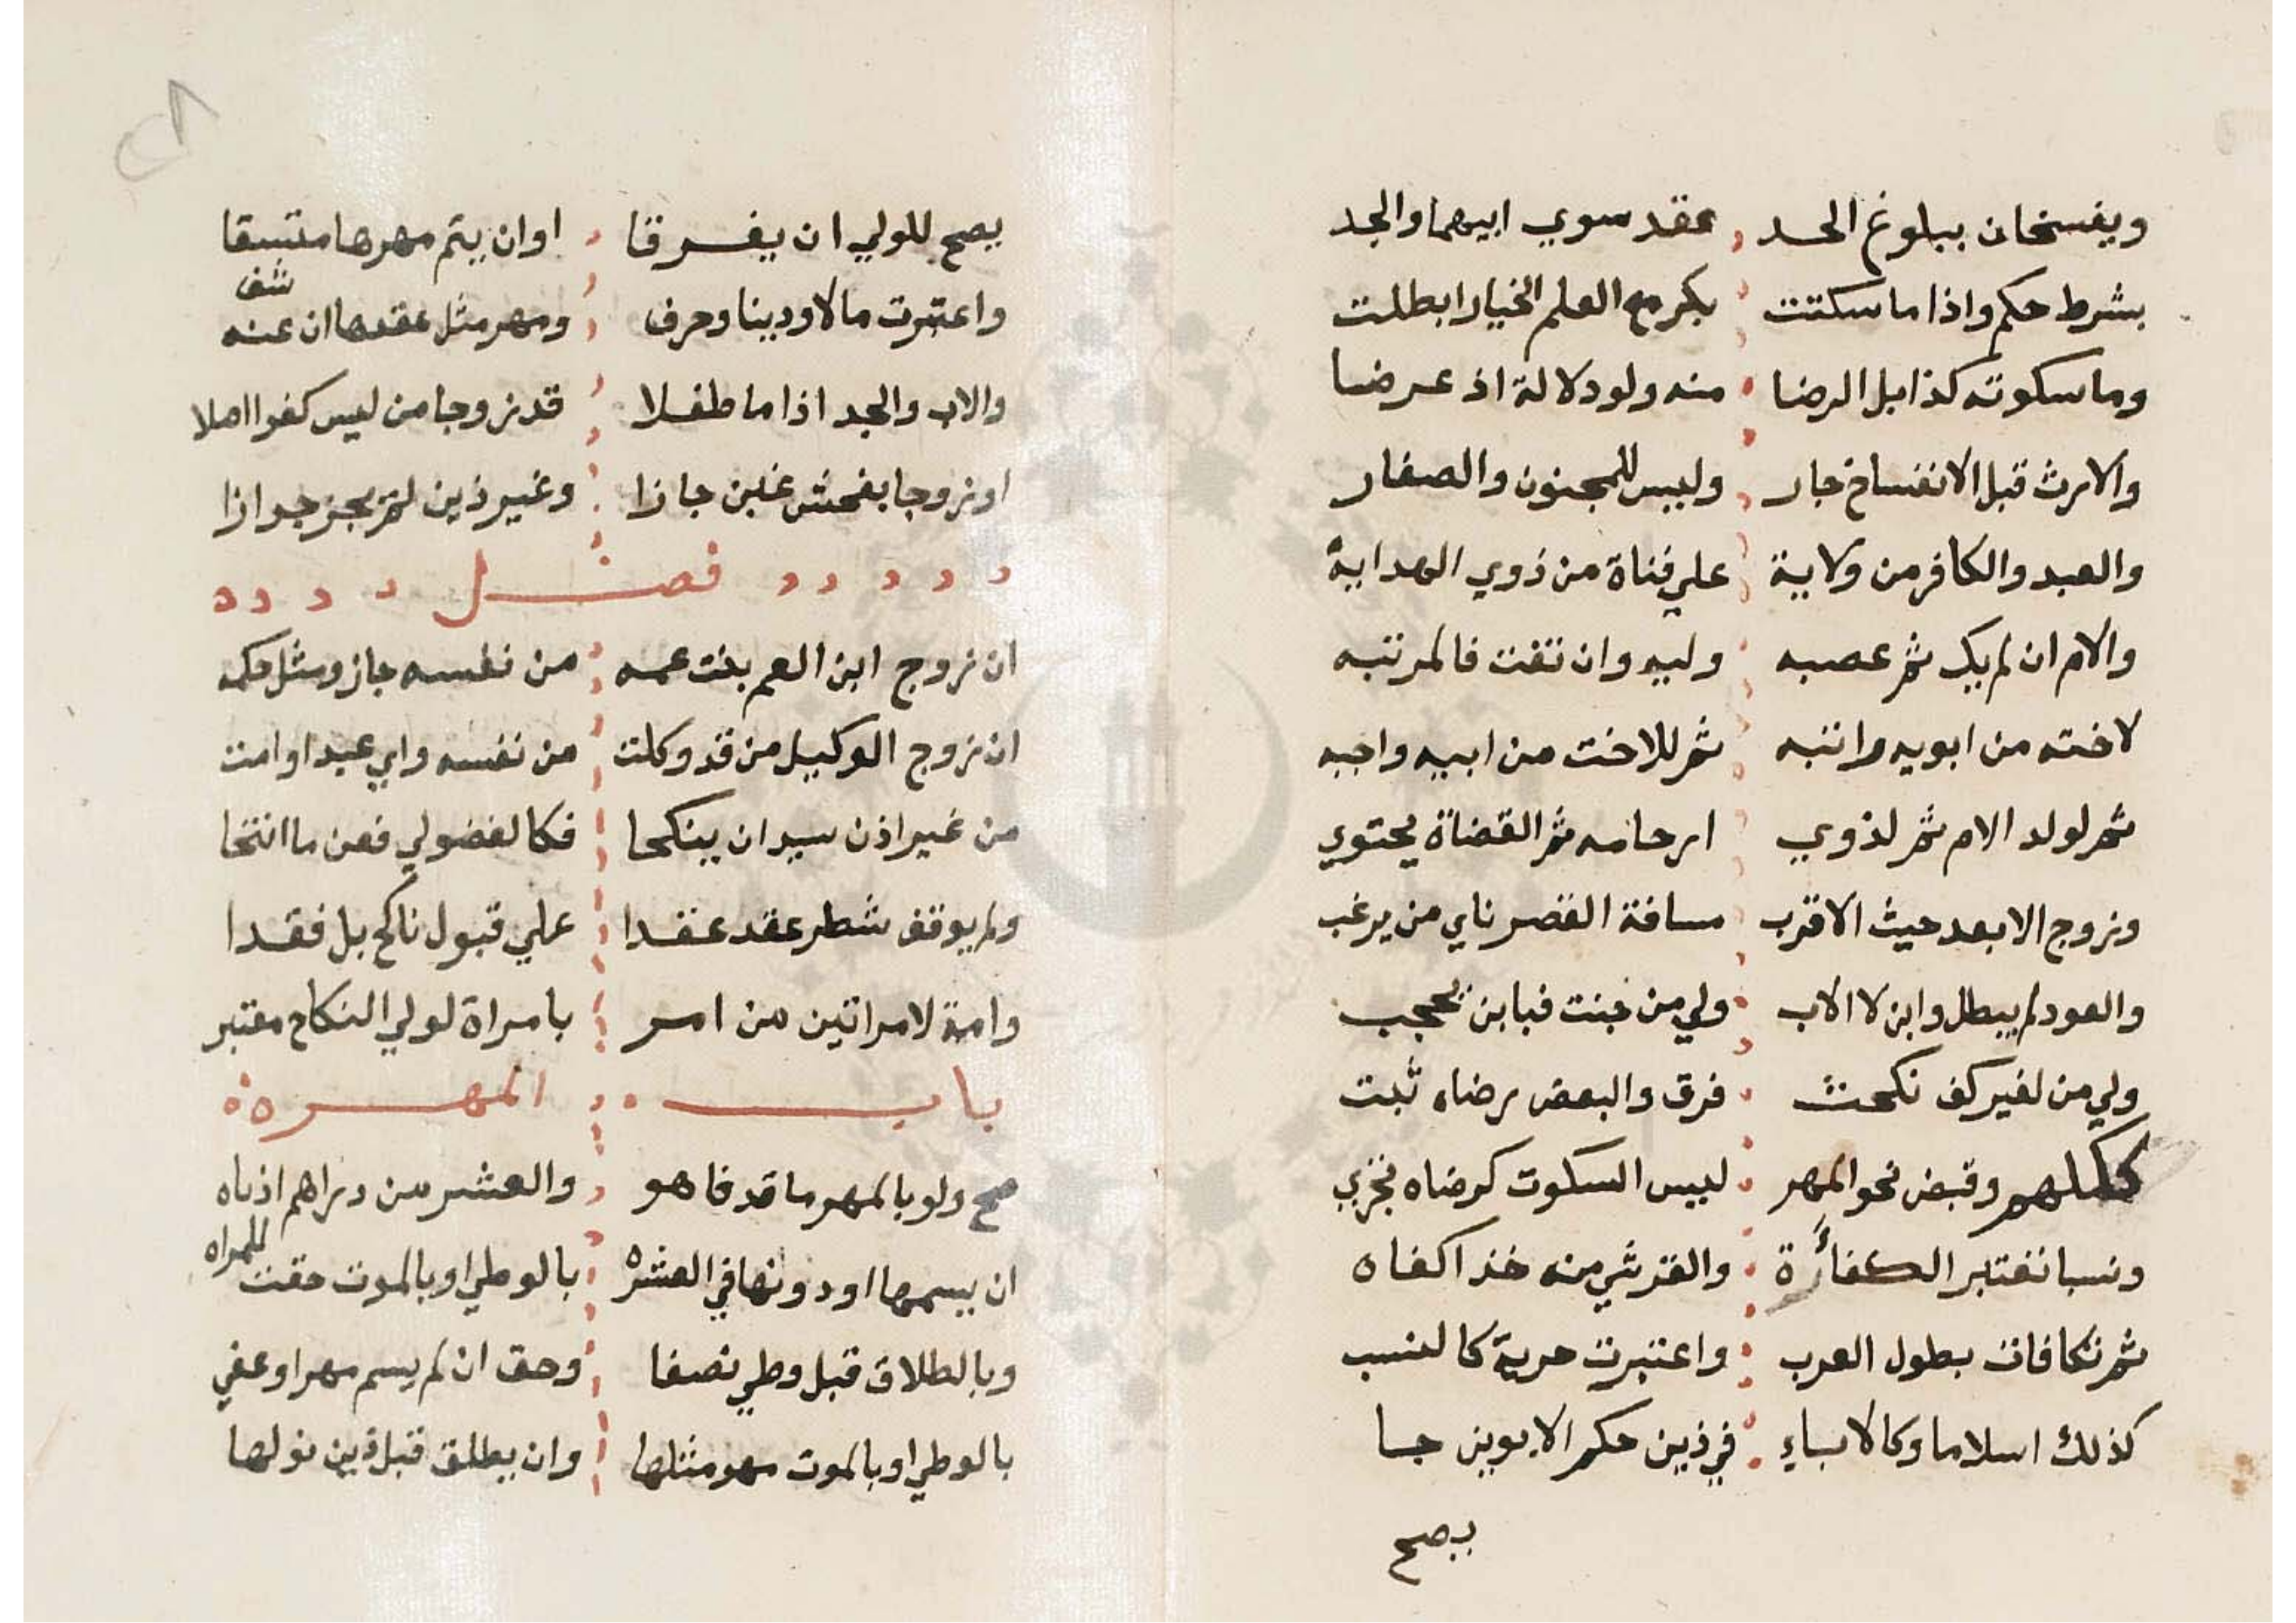 ويفسخان ببلوغ الحد عقد سوي ابيهما والجد
بشرط حكم واذا ما سكتت بكر مع العلم الخيار ابطلت
وما سكوته كذا بل الرضا منه ولو دلالة اذ عرضا
والارث قبل الانفساخ جار وليس للمجنون والصغار
والعبد والكافر من ولاية علي فتاة من ذوي الهداية
والام ان لم يك ثم عصبه وليه وان تفت فالمرتبه
لاخته من ابويه وانتبه ثم للاخت من ابيه واجبه
ثم لولد الام ثم لذوي ارحامه ثم القضاة يحتوي
وزوج الابعد حيث الاقرب مسافة القصر ناي من يرغب
والعود لم يبطل وابن لا الاب ولي من جنت فبابن يحجب
ولي من لغير كف نكحت فرق والبعض رضاه ثبت
ككلهم وقبض نحو المهر ليس السكوت كرضاه فجزي
ونسبا تعتبر الكفاءة والقرشي منه خذ اكفاه
ثم تكافات بطول العرب واعتبرت حرية كالنسب
كذلك اسلاما وكالاباء في ذين حكم الابوين جا
يصح
٢٨
يصح للولي ان يفرقا او ان يتم مهرها متسقا
واعتبرت مالا ودينا وحرف ومهر مثل عقدها ان عنه شف
والاب والجد اذا ما طفلا قد زوجا من ليس كفوا اصلا
او زوجا بفحش غبن جازا وغير ذين لم يجز جوازا
فصل
ان زوج ابن العم بنت عمه من نفسه جاز ومثل حكمه
ان زوج الوكيل من قد وكلت من نفسه واي عبد او امت
من غير اذن سيد ان ينكحا فكالفضولي فعن ما انتحا
ولم يوقف شطر عقد عقدا علي قبول ناكح بل فقدا
وامة لامراتين من امر بامراة لولي النكاح معتبر
باب المهر
صح ولو بالمهر ما قد فاهو والعشر من دراهم ادناه
ان يسمها او دونها في العشره بالوطي او بالموت حقت للمراه
وبالطلاق قبل وطي نصفا وحق ان لم يسم مهرا وعفي
بالوطي او بالموت مهر مثلها وان يطلق قبل ذين فولها